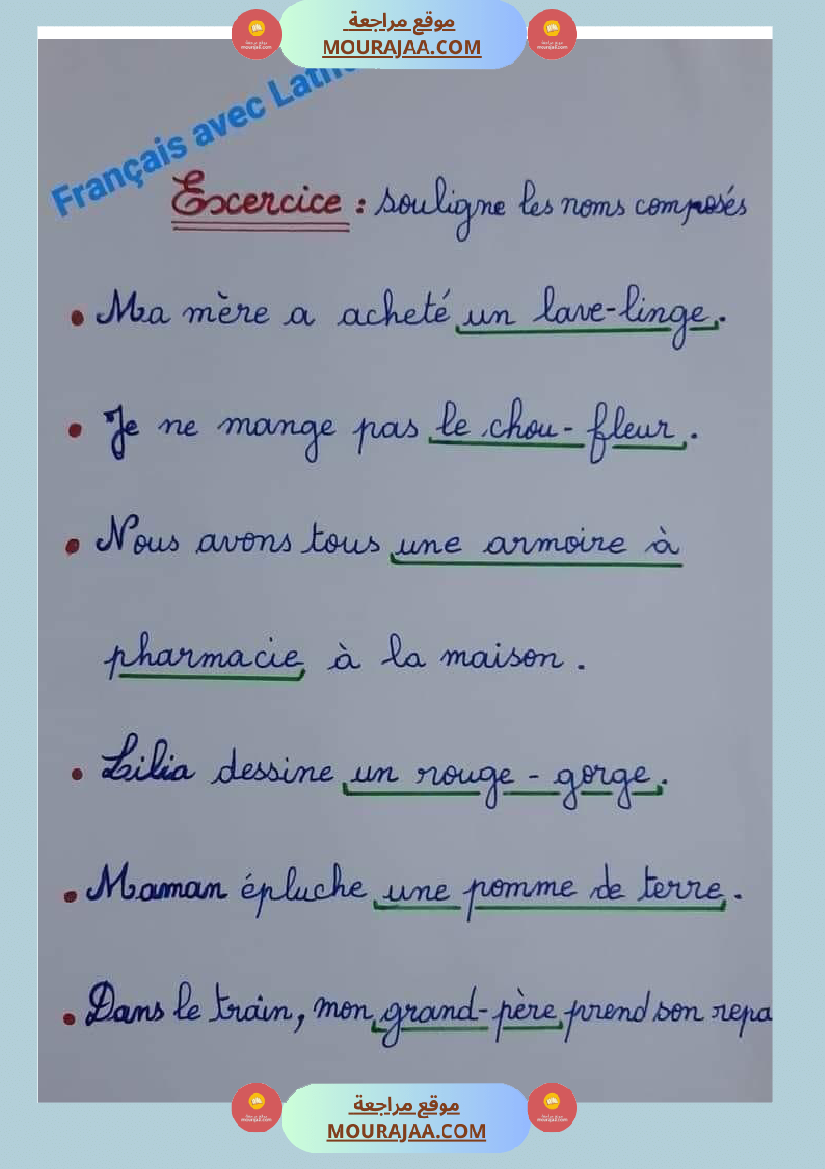 موقع مراجعة
MOURAJAA.COM
Français avec
Excercice : souligne les noms composés
• Ma mère a acheté un lave-linge.
• Je ne mange pas le chou-fleur.
• Nous avons tous une armoire à
pharmacie à la maison.
• Lilia dessine un rouge-gorge.
• Maman épluche une pomme de terre.
• Dans le train, mon grand-père prend son repa
موقع مراجعة
MOURAJAA.COM